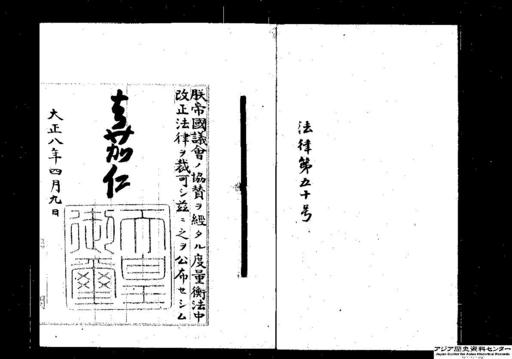 法律第五十号
朕帝國議會ノ協贊ヲ經タル度量衡法中
改正法律ヲ裁可シ茲ニ之ヲ公布セシム
嘉仁
天皇
御璽
大正八年四月九日
アジア歴史資料センター
Japan Center for Asian Historical Records